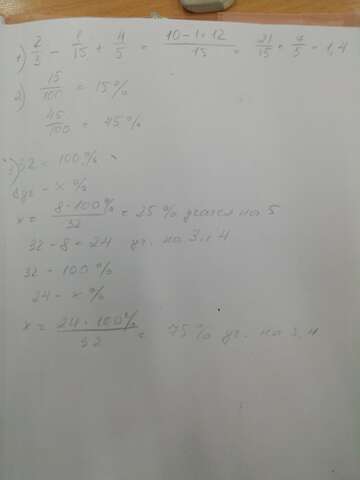 1) 2/3 - 1/15 + 4/5 = 10-1+12/15 = 21/15 = 7/5 = 1,4
2) 15/100 = 15%
45/100 = 45%
3) 32 - 100%
8уч - x%
x = 8·100%/32 = 25% учился на 5
32 - 8 = 24 уч. на 3 и 4
32 - 100%
24 - x%
x = 24·100%/32 = 75% уч. на 3, 4